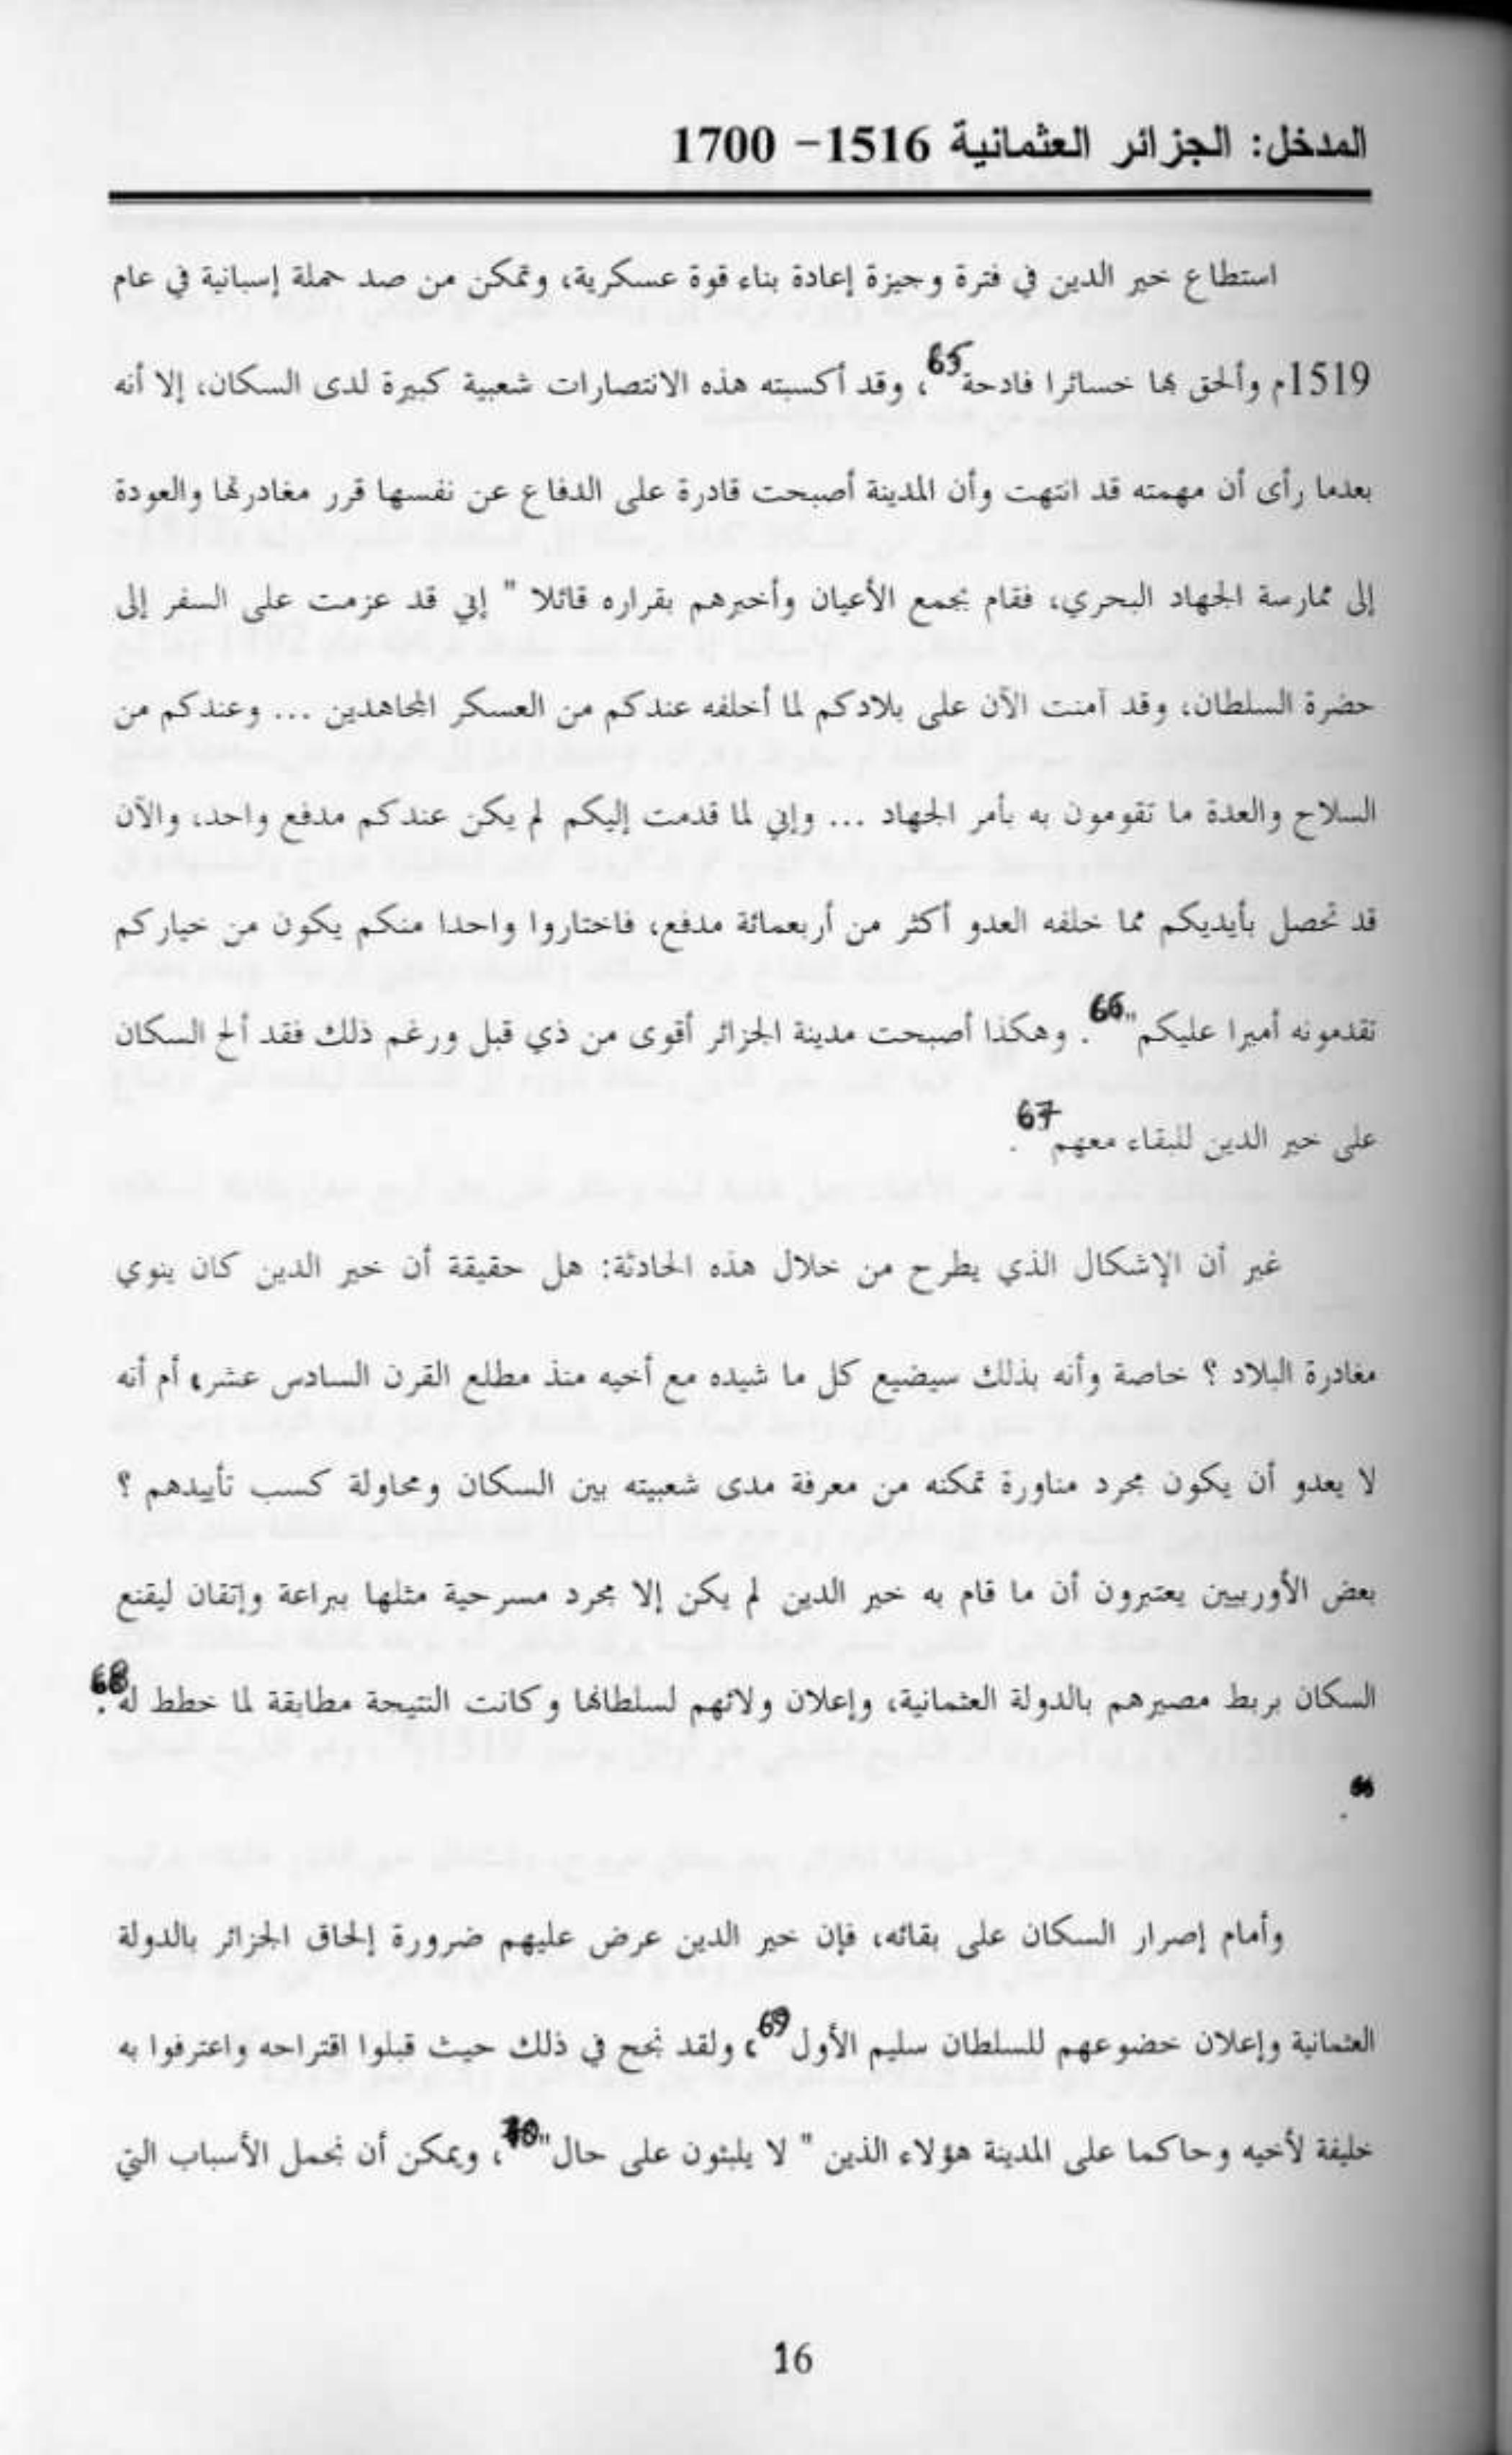 المدخل: الجزائر العثمانية 1516– 1700
استطاع خير الدين في فترة وجيزة إعادة بناء قوة عسكرية، وتمكن من صد حملة إسبانية في عام
1519م وألحق بها خسائرا فادحة65، وقد أكسبته هذه الانتصارات شعبية كبيرة لدى السكان، إلا أنه
بعدما رأى أن مهمته قد انتهت وأن المدينة أصبحت قادرة على الدفاع عن نفسها قرر مغادرتها والعودة
إلى ممارسة الجهاد البحري، فقام بجمع الأعيان وأخبرهم بقراره قائلا " إني قد عزمت على السفر إلى
حضرة السلطان، وقد آمنت الآن على بلادكم لما أخلفه عندكم من العسكر المجاهدين ... وعندكم من
السلاح والعدة ما تقومون به بأمر الجهاد ... وإني لما قدمت إليكم لم يكن عندكم مدفع واحد، والآن
قد تحصل بأيديكم مما خلفه العدو أكثر من أربعمائة مدفع، فاختاروا واحدا منكم يكون من خياركم
تقدمونه أميرا عليكم"66. وهكذا أصبحت مدينة الجزائر أقوى من ذي قبل ورغم ذلك فقد ألح السكان
على خير الدين للبقاء معهم67.
غير أن الإشكال الذي يطرح من خلال هذه الحادثة: هل حقيقة أن خير الدين كان ينوي
مغادرة البلاد ؟ خاصة وأنه بذلك سيضيع كل ما شيده مع أخيه منذ مطلع القرن السادس عشر، أم أنه
لا يعدو أن يكون مجرد مناورة تمكنه من معرفة مدى شعبيته بين السكان ومحاولة كسب تأييدهم ؟
بعض الأوربيين يعتبرون أن ما قام به خير الدين لم يكن إلا مجرد مسرحية مثلها ببراعة وإتقان ليقنع
السكان بربط مصيرهم بالدولة العثمانية، وإعلان ولائهم لسلطانها وكانت النتيجة مطابقة لما خطط له68.
وأمام إصرار السكان على بقائه، فإن خير الدين عرض عليهم ضرورة إلحاق الجزائر بالدولة
العثمانية وإعلان خضوعهم للسلطان سليم الأول69، ولقد نجح في ذلك حيث قبلوا اقتراحه واعترفوا به
خليفة لأخيه وحاكما على المدينة هؤلاء الذين " لا يلبثون على حال"70، ويمكن أن نجمل الأسباب التي
16